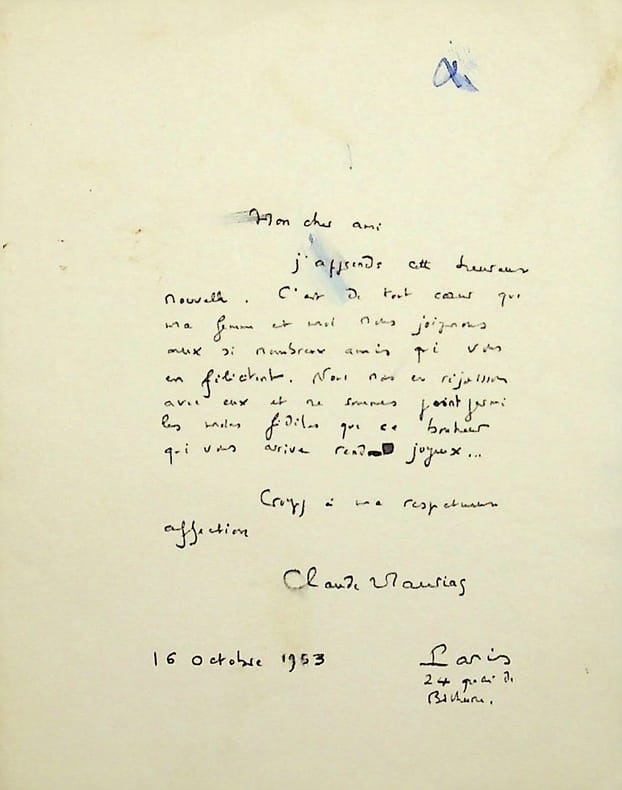 Mon cher ami
j'apprends cette heureuse
nouvelle. C'est de tout cœur que
ma femme et moi nous joignons
aux si nombreux amis qui vous
en félicitent. Nous nous en réjouissons
avec eux et ne sommes point parmi
les moins fidèles que ce bonheur
qui vous arrive rend joyeux...
Croyez à ma respectueuse
affection
Claude Mauriac
16 octobre 1953
Paris
24 quai de
Béthune.